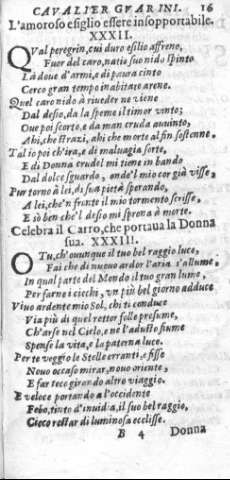 CAVALIER GUARINI. 16
L'amoroso esiglio essere insopportabile.
XXXII.
QVal peregrin, cui duro esilio affreno,
Fuor del caro, natio suo nido spinto
Là doue d'armi, e di paura cinto
Cerco gran tempo inabitato areno.
Quel caro nido à riueder ne vieno
Dal desio, da la speme il timor vinto;
Oue poi scorto, e da man cruda auuinto,
Ahi, che strazi, ahi che morte al fin sosteno.
Tal io poi ch'ira, e di maluagia sorte,
E di Donna crudel mi tiene in bando
Dal dolce sguardo, onde'l mio cor già visse,
Pur torno à lei, di sua pietà sperando,
A lei, che'n fronte il mio tormento scrisse,
E iò ben che'l desio mi sprona à morte.
Celebra il Carro, che portaua la Donna
sua. XXXIII.
O Tu, ch'ouunque il tuo bel raggio luce,
Fai che di nuouo ardor l'aria s'allume,
In qual parte del Mondo il tuo gran lume,
Per farne i ciechi, vn più bel giorno adduce
Viuo ardente mio Sol, chi ti conduce
Via più di quel rettor folle presume,
Ch'arse nel Cielo, e ne l'adusto fiume
Spense la vita, e la paterna luce.
Per te veggio le Stelle erranti, e fisse
Nouo occaso mirar, nouo oriente,
E far teco girando altro viaggio.
E veloce portando a l'occidente
Febo, tinto d'inuidia, il suo bel raggio,
Cieco restar di luminosa ecclisse.
B 4 Donna